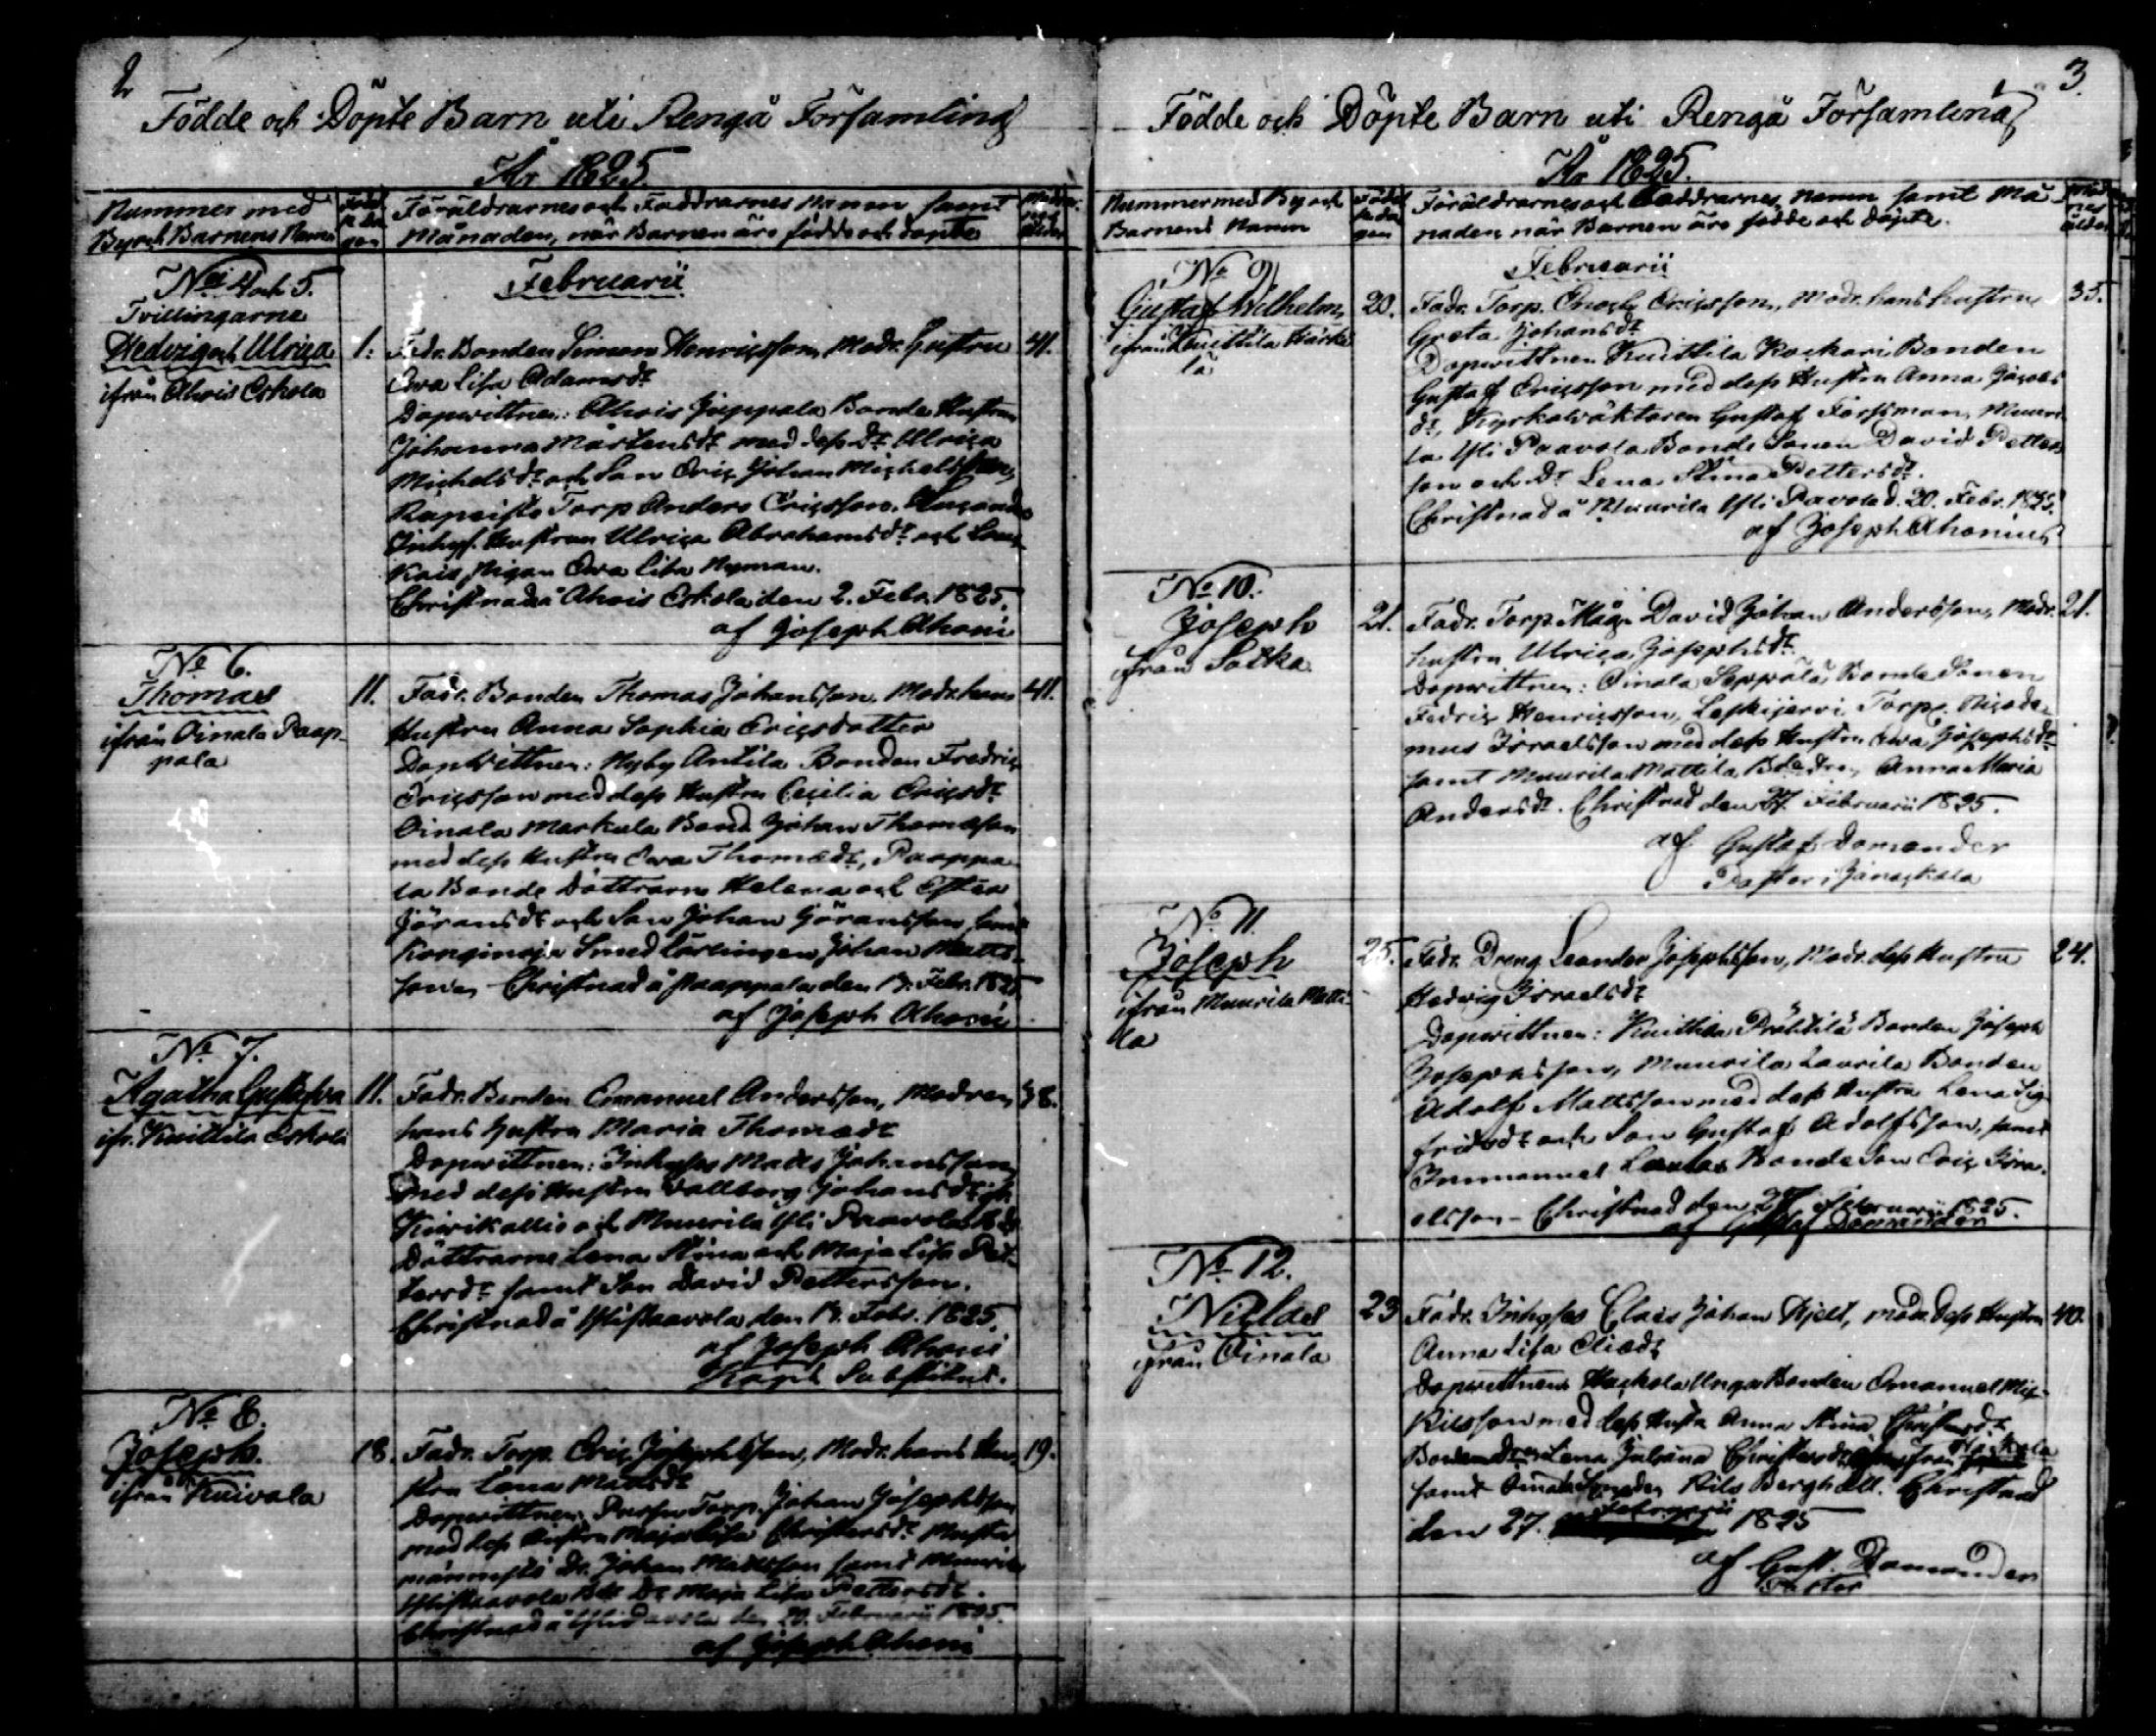 2
Födde och Döpte Barn uti Rengå Församling
År 1825.
Nummer med
By och Barnens Namn
Född
gen
Föräldrarnes och Faddrarnes Namn samt
Månaden, när Barnen äro födde och döpte
Februarii
No 4 och 5.
Tvillingarne
Hedvig och Ulrica
ifrån Ahois Eskola
1.
Fadr. Bonden Simon Henricsson, Modr. Hustru
Eva Lisa Adamsdr
41.
Dopwittnen: Ahois Juppala Bonde Hustrun
Johanna Mårtensdr med dess Dr Ulrica
Michelsdr och Son Eric Johan Michelsson,
Torp Anders Ericsson,
Inhys. Hustrun Ulrica Abrahamsdr och
Pigan Eva Lisa Nyman.
Christnad å Ahois Eskola den 2. Febr. 1825.
af Joseph Ahoni
No 6.
Thomas
ifrån Oinala Paap-
pala
11.
Fadr. Bonden Thomas Johansson, Modr. hans
41.
Hustru Anna Sophia Ericsdotter
Dopwittnen: Nyby Antila Bonden Fredric
Ericsson med dess Hustru Cecilia Ericsdr
Oinala Markula Bond. Johan Thomasson
med dess Hustru Eva Thomædr, Paappa-
la Bonde Döttrarne Helena och Ester
Göransdr och Son Johan Göransson samt
Konginoja Smed Lärlingen Johan Matts-
son. Christnad å Paappala den 13. Febr. 1825
af Joseph Ahoni
No 7.
Agatha Gustafva
ifr. Knittila Eskola
11.
Fadr. Bonden Emanuel Andersson, Modren
38.
hans Hustru Maria Thomædr
Dopwittnen: Inhyses Matts Johansson
med dess Hustru Vallborg Johansdr ifr.
Kivikallio och Muurila Yli Paavola Bde
Döttrarne Lena Stina och Maja Lisa Pet-
tersdr samt Son David Pettersson.
Christnad å Ylipaavola den 13. Febr. 1825.
af Joseph Ahoni
Kapl. Substitut.
No 8.
Joseph.
ifrån Knivala
18.
Fadr. Torp. Eric Josephsson, Modr. hans Hu-
19.
stru Lena Mattsdr
Dopwittnen: Torp. Johan Josephsson
med dess Hustru Maja Lisa Christersdr
Dr. Johan Mattsson samt Muurila
Ylipaavola Bde Dr Maja Lisa Pettersdr.
Christnad å Ylipaavola den 20. Februarii 1825.
af Joseph Ahoni
3.
Födde och Döpte Barn uti Rengå Församling
År 1825.
Nummer med By och
Barnens Namn
Född
gen
Föräldrarnes och Faddrarnes Namn samt Må-
naden när Barnen äro födde och döpte.
Februarii
No 9
Gustaf Wilhelm
ifrån Knittila Härkä
lä
20.
Fadr. Torp. Enoch Ericsson, Modr. hans hustru
33.
Greta Johansdr
Dopwittnen Knittila Kockari Bonden
Gustaf Ericsson med dess Hustru Anna Jacobs
dr, Kyrkowäktaren Gustaf Forsman, Muuri-
la Yli Paavola Bonde Sonen David Petters-
son och Dr Lena Stina Pettersdr.
Christnad å Muurila Yli Pavola d. 20. Febr. 1825.
af Joseph Ahonius
No 10.
Joseph
ifrån Sotka
21.
Fadr. Torp. Måg David Johan Andersson, Modr.
21.
hustru Ulrica Josephsdr
Dopwittnen: Oinala Seppälä Bonde Sonen
Fedric Henricsson, Leskijervi Torp. Nicode-
mus Israelsson med dess Hustru Eva Josephsdr
samt Muurila Mattila Anna Maria
Andersdr. Christnad den 27 Februarii 1825.
af Gustaf Domander
Pastor i Janackala
No 11.
Joseph
ifrån Muurila Matti-
la
25.
Fadr. Dreng Leander Josephsson, Modr. dess Hustru
24.
Hedwig Israelsdr
Dopwittnen: Knittila Präktilä Bonden Joseph
Josephsson, Muurila Laurila Bonden
Adolf Mattsson med dess Hustru Lena Sig-
fridsdr och Son Gustaf Adolfsson, samt
Immanuel Bonde Son Eric Isra-
elsson - Christnad den 27 Februarii 1825.
af Gustaf Domander
No 12.
Niclas
ifrån Oinala
23
Fadr. Inhyses Claës Johan Hjelt, modr. dess Hustru
40.
Anna Lisa Eliædr
Dopwittnen Hackola Unga Bonden Emanuel Mic-
kilsson med dess Hustru Anna Stina Christersdr
Lena Juliana Christersdr från Hackola
samt Oinala Smeden Nils Berghäll. Christnad
den 27. Februarii 1825
af Gust. Domander
Pastor